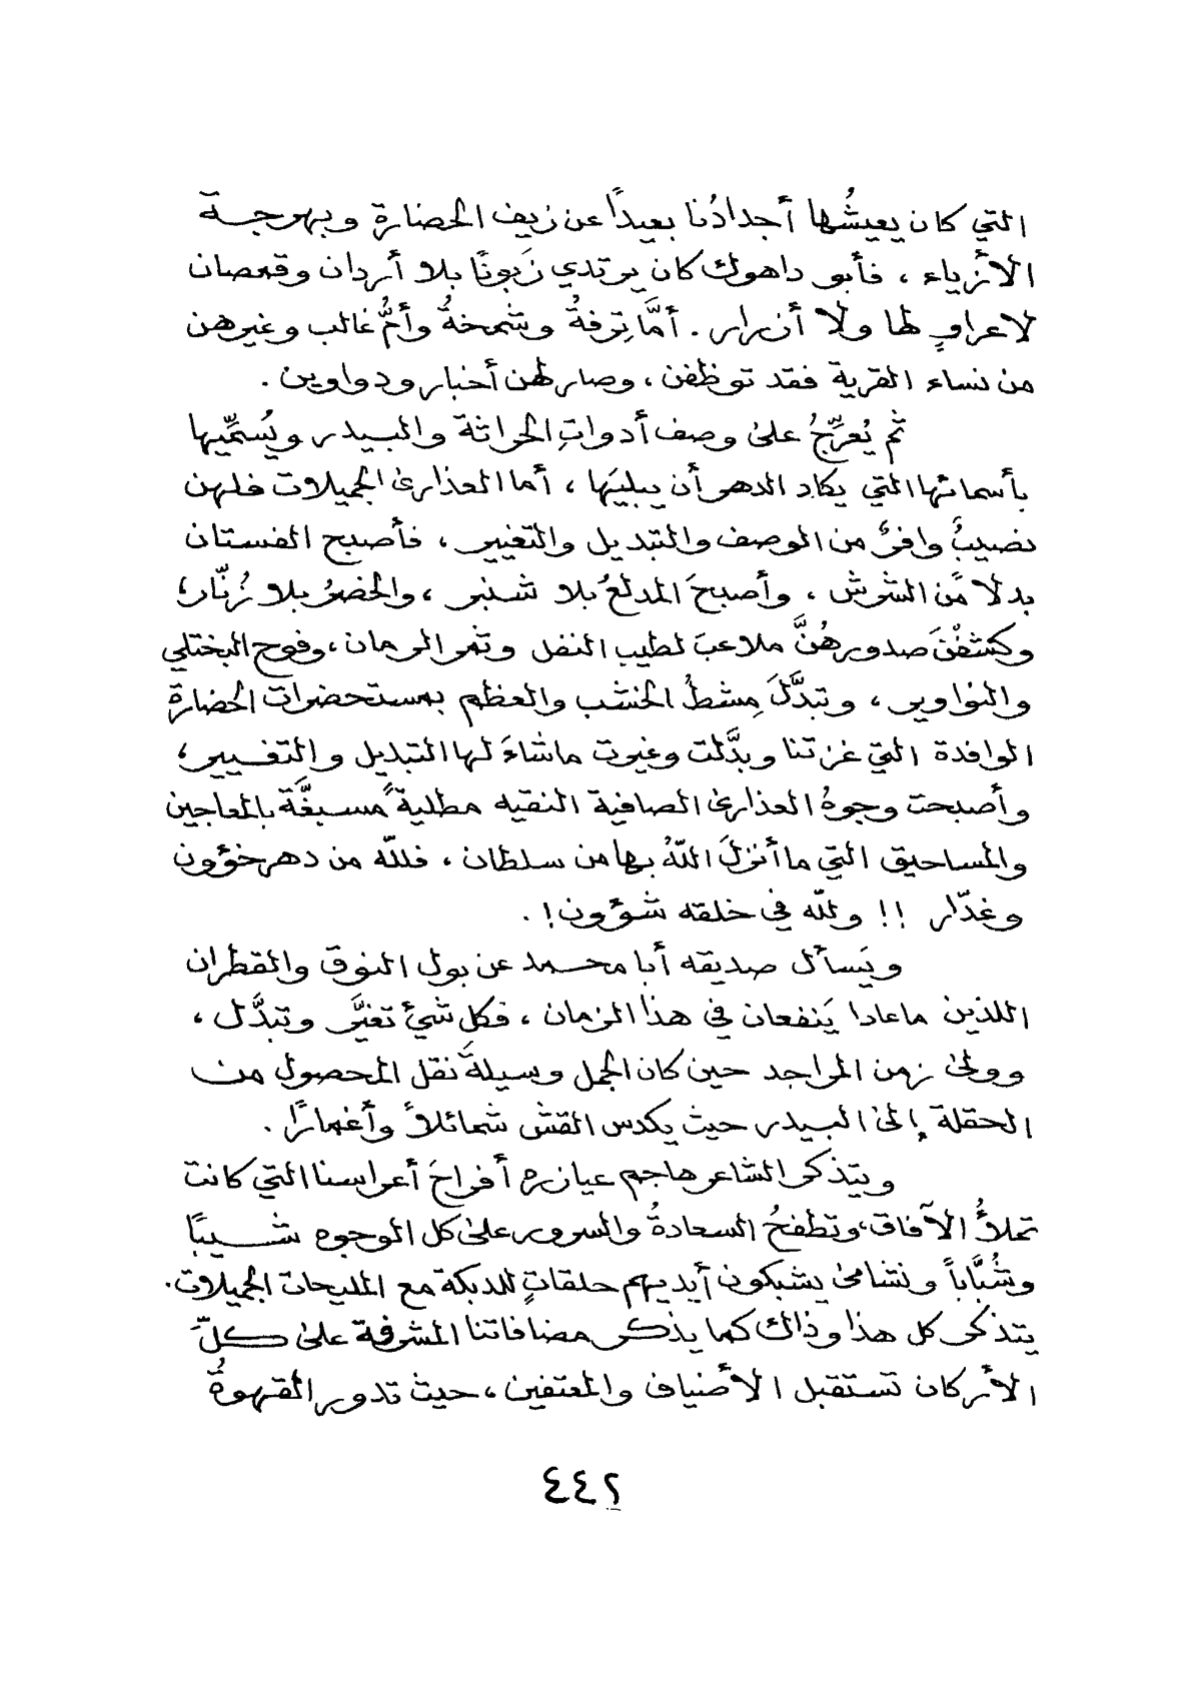 التي كان يعيشُها أجدادُنا بعيداً عن زيف الحضارة وبهرجة
الأزياء ، فأبو داهوك كان يرتدي زَبونًا بلا أردان وقمصان
لا عراوٍ لها ولا أزرار . أمَّا تِرفةُ وشمخةُ وأمُّ غالب وغيرهن
من نساء القرية فقد توظفن ، وصار لهن أخبار ودواوين .
ثم يُعرِّجُ على وصف أدواتِ الحراثة والبيدر ويُسمِّيها
بأسمائها التي يكاد الدهر أن يبليَها ، أما العذارى الجميلات فلهن
نصيبٌ وافرٌ من الوصف والتبديل والتغيير ، فأصبح الفستان
بدلاً من الشرش ، وأصبحَ المدلعُ بلا شنبر ، والخصرُ بلا زُنّار ،
وكشفْنَ صدورهُنَّ ملاعبَ لطيب النفل وثمر الرمان ، وفوح البختلي
والنواوير ، وتبدَّلَ مِشطُ الخشب والعظم بمستحضرات الحضارة
الوافدة التي غزتنا وبدَّلت وغيرت ماشاءَ لها التبديل والتغيير ،
وأصبحت وجوهُ العذارى الصافية النقيه مطليةً مسبغَّة بالمعاجين
والمساحيق التي ما أنزلَ اللّهُ بها من سلطان ، فللّه من دهر خؤون
وغدّار !! وللّه في خلقه شؤون ! .
ويَسأل صديقه أبا محمد عن بول النوق والقطران
اللذين ماعادا يَنفعان في هذا الزمان ، فكل شيءٍ تغيَّر وتبدَّل ،
وولى زمن المراجد حين كان الجمل وسيلةَ نقل المحصول من
الحقلة إلى البيدر حيث يكدس القش شمائلاً وأغمارًا .
ويتذكر الشاعر هاجم عيازره أفراحَ أعراسنا التي كانت
تملأُ الآفاق ، وتطفحُ السعادةُ والسرور على كل الوجوه شيبًا
وشُبَّاباً ونشامى يشبكون أيديهم حلقاتٍ للدبكة مع المليحات الجميلات .
يتذكر كل هذا وذاك كما يذكر مضافاتنا المشرفة على كلِّ
الأركان تستقبل الأضياف والمعتفين ، حيث تدور القهوةُ
٤٤٢